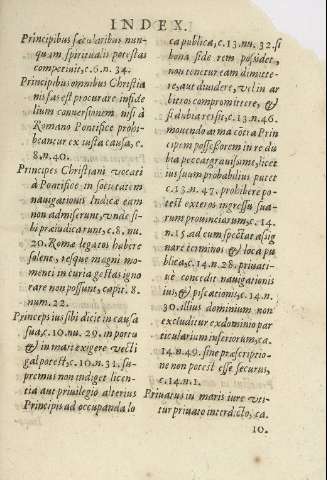 INDEX.
Principibus sæcularibus nun-
quam spiritualis potestas
competiuit, c. 6. n. 34.
Principibus omnibus Christia
nis fas est procurare infide
lium conuersionem nisi à
Romano Pontifice prohi-
beantur ex iusta causa, c.
8. n. 40.
Principes Christiani vocati
à Pontifice in societatem
nauigationis Indicæ eam
non admiserunt, vnde si-
bi præiudicarunt, c. 8. nu.
20. Romæ legatos habere
solent, resque magni mo-
menti in curia gestas igno
rare non possunt, capit. 8.
num. 22.
Princeps ius sibi dicit in causa
sua, c. 10. nu. 29. in portu
& in mari exigere vecti
gal potest, c. 10. n. 31. su-
premus non indiget licen-
tia aut priuilegio alterius
Principis ad occupanda lo
ca publica, c. 13. nu. 32. si
bona fide rem possidet,
non tenetur eam dimitte-
re, aut diuidere, vel in ar
bitros compromittere, &
si dubia resit, c. 13. n. 46.
mouendo arma cōtra Prin
cipem possessorem in re du
bia peccat grauissime, licet
ius suum probabilius putet
c. 13. n. 47. prohibere po-
test exteros ingressu sua-
rum prouinciarum, c. 14.
n. 15. ad eum spectat assig
nare terminos & loca pu
blica, c. 14. n. 28. priuati-
uè concedit nauigationis
ius, & piscationis, c. 14. n.
30. illius dominium non
excluditur ex dominio par
ticularium inferiorum, ca.
14. n. 49. sine præscriptio-
ne non potest esse securus,
c. 14. n. 1.
Priuatus in maris iure veti-
tur priuato interdicto, ca.
10.